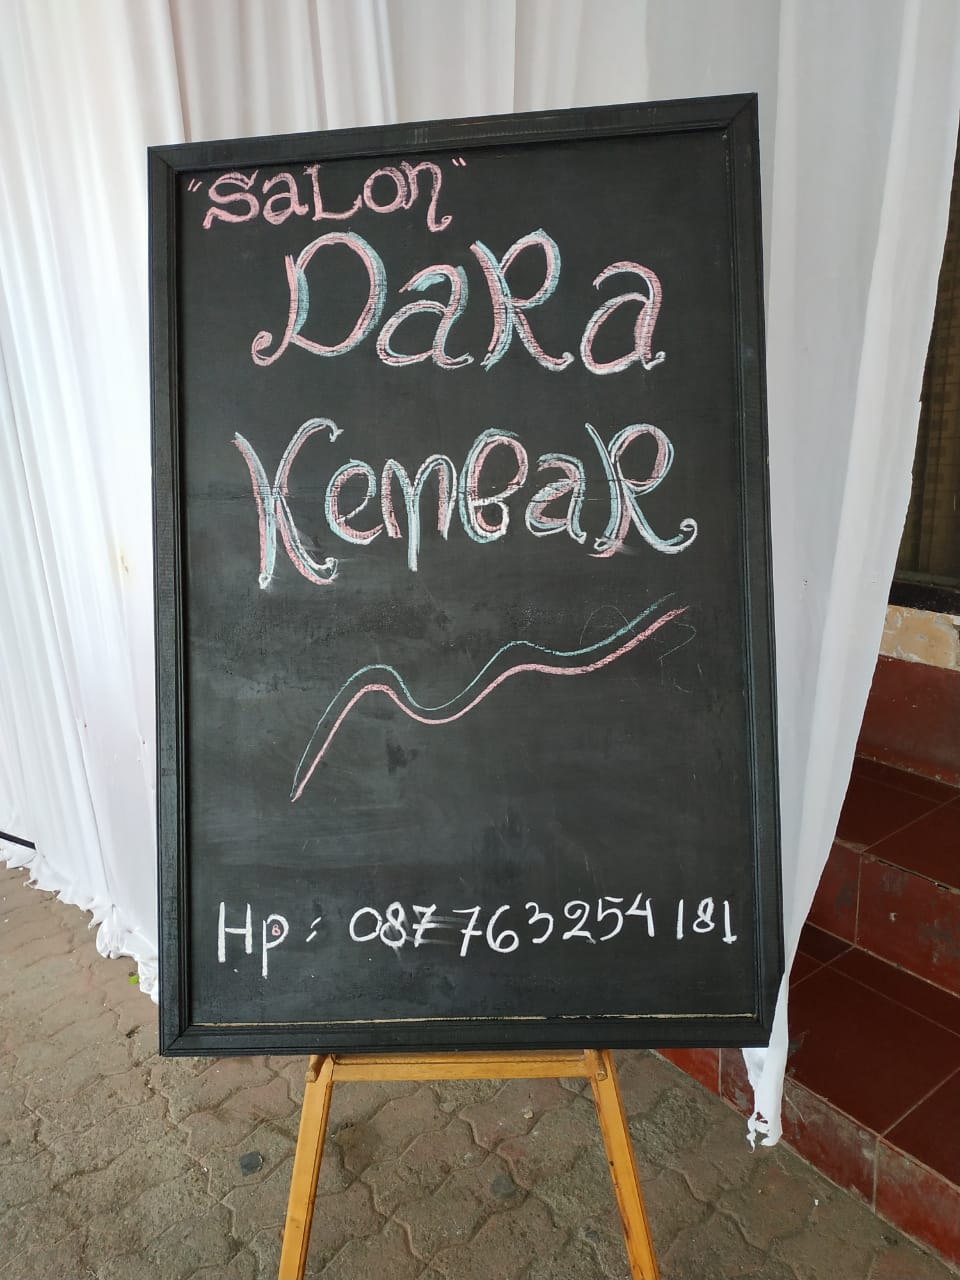 "SaLon"
DaRa
KemBaR
Hp : 087 763254 181